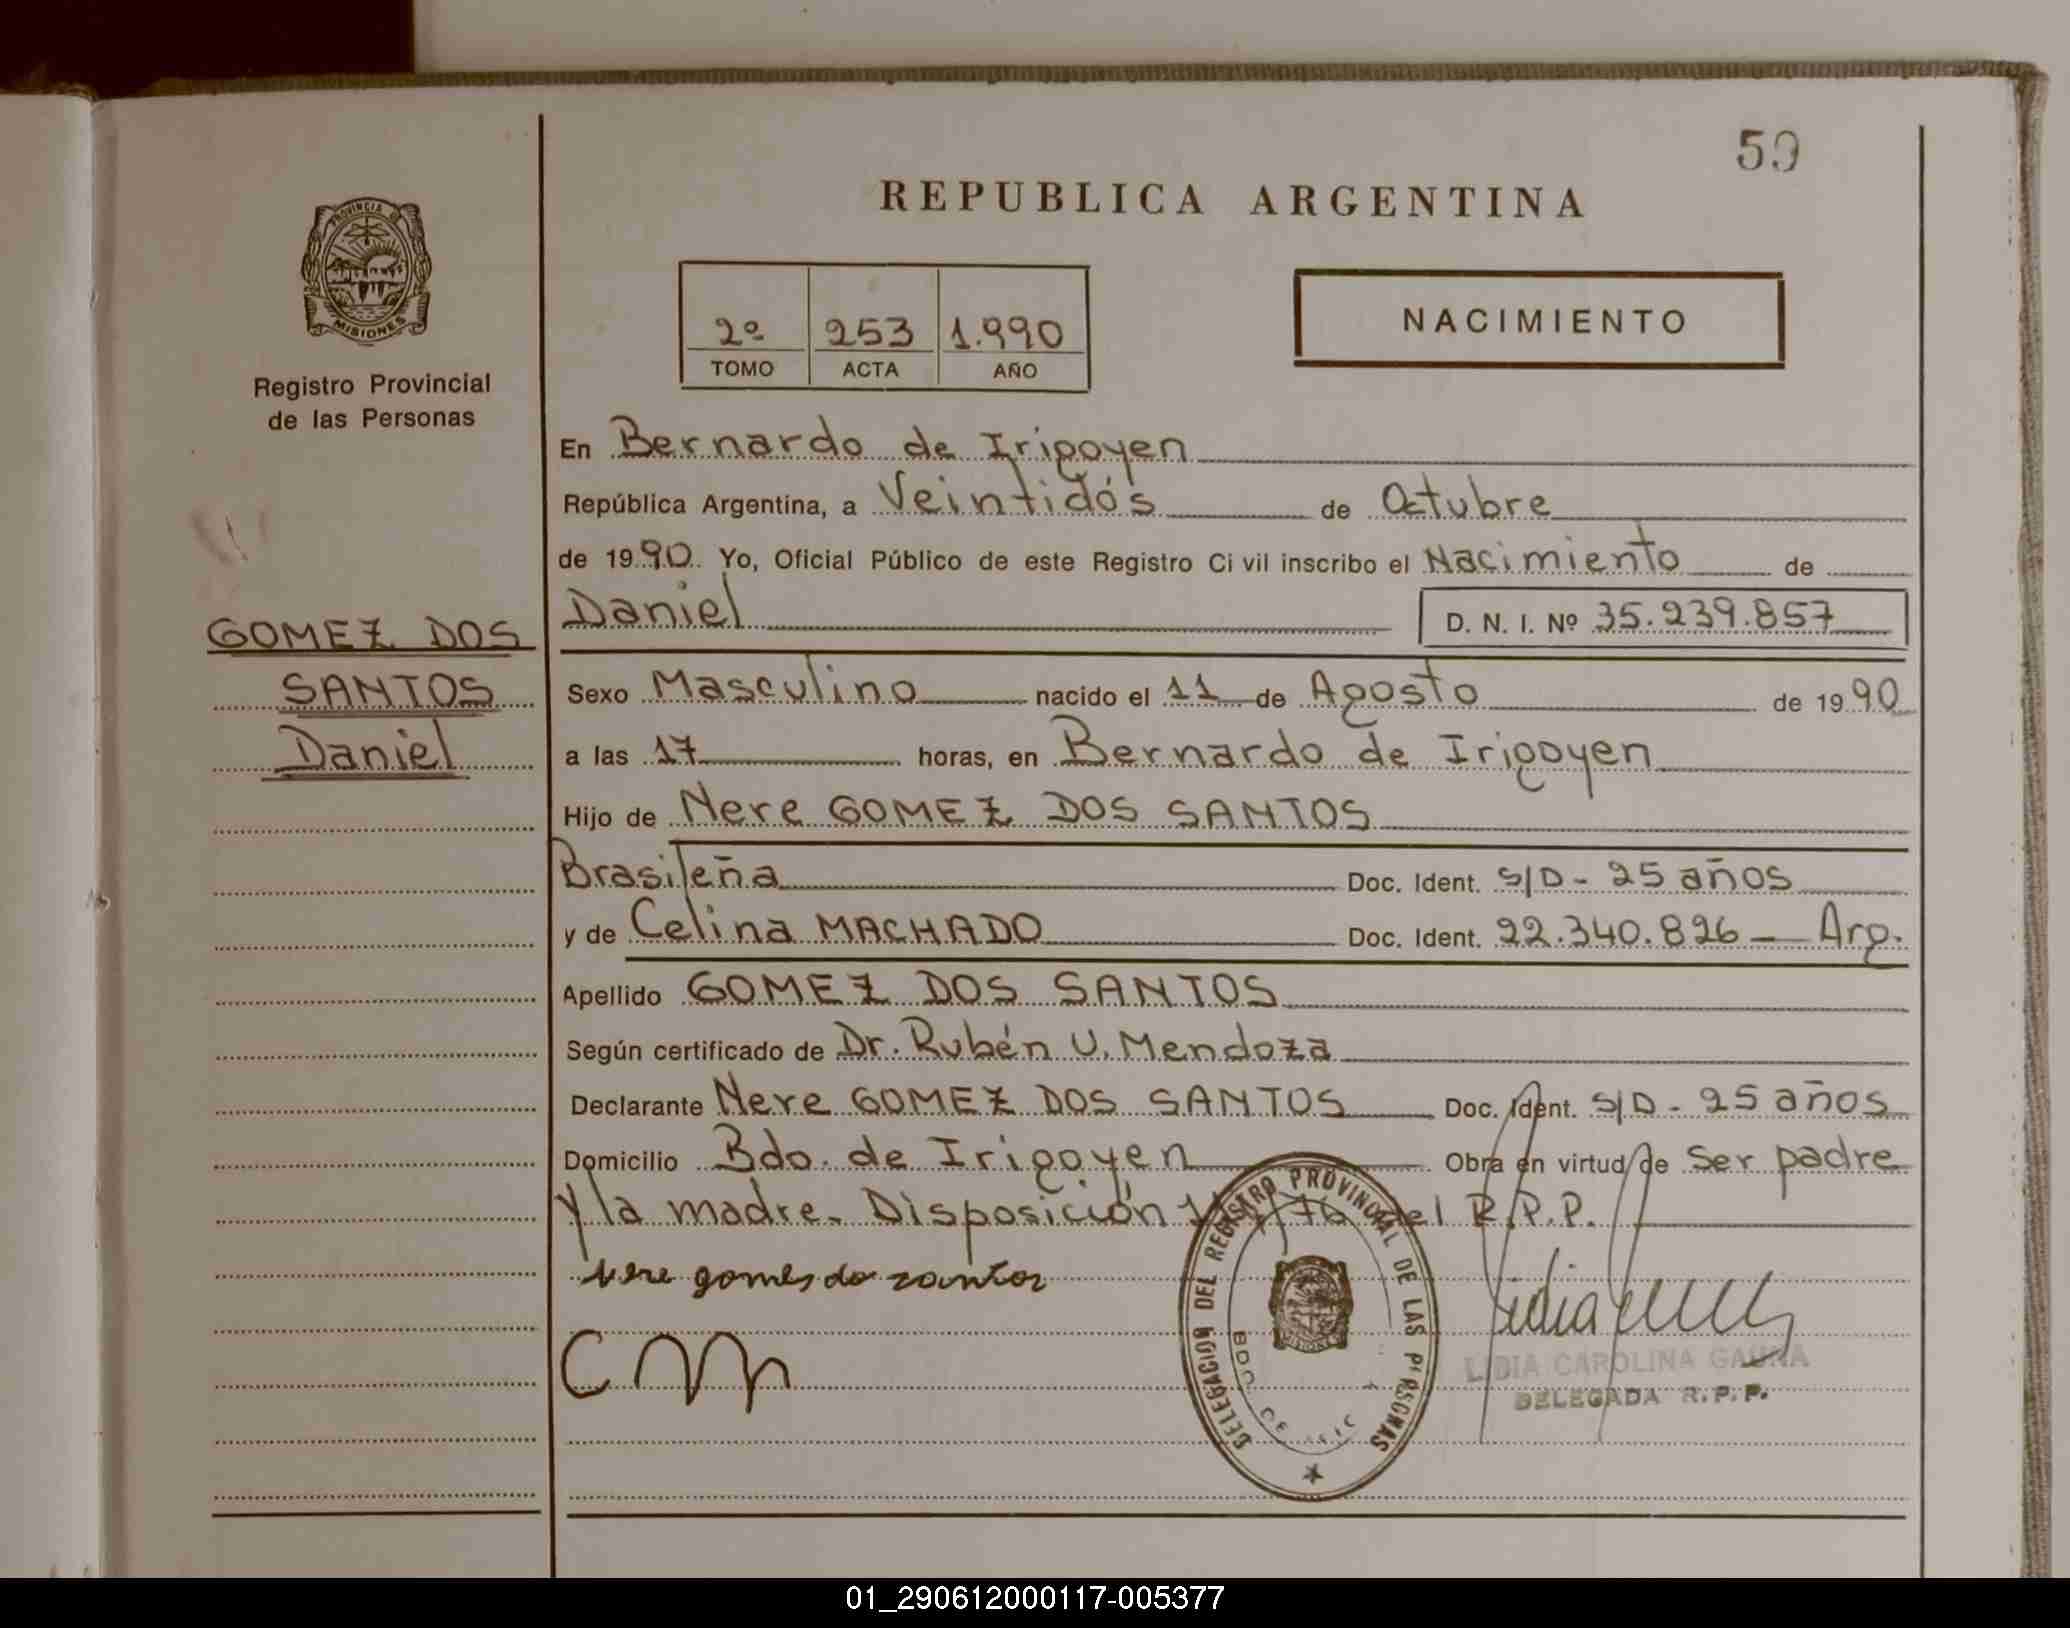 59
REPUBLICA ARGENTINA
PROVINCIA DE
MISIONES
Registro Provincial
de las Personas
2º 253 1.990
TOMO ACTA AÑO
NACIMIENTO
En Bernardo de Irigoyen
República Argentina, a Veintidós de Octubre
de 1990. Yo, Oficial Público de este Registro Civil inscribo el Nacimiento de
Daniel D. N. I. Nº 35.239.857
GOMEZ DOS
SANTOS
Daniel
Sexo Masculino nacido el 11 de Agosto de 1990
a las 17 horas, en Bernardo de Irigoyen
Hijo de Nere GOMEZ DOS SANTOS
Brasileña Doc. Ident. S/D - 25 años
y de Celina MACHADO Doc. Ident. 22.340.826 - Arg.
Apellido GOMEZ DOS SANTOS
Según certificado de Dr. Rubén U. Mendoza
Declarante Nere GOMEZ DOS SANTOS Doc. Ident. S/D - 25 años
Domicilio Bdo. de Irigoyen Obra en virtud de Ser padre
y la madre. Disposición del R.P.P.
nere gomes do santos
CM
DELEGACION DEL REGISTRO PROVINCIAL DE LAS PERSONAS
BDO. DE
MISIONES
LIDIA CAROLINA GAUNA
DELEGADA R.P.P.
01_290612000117-005377